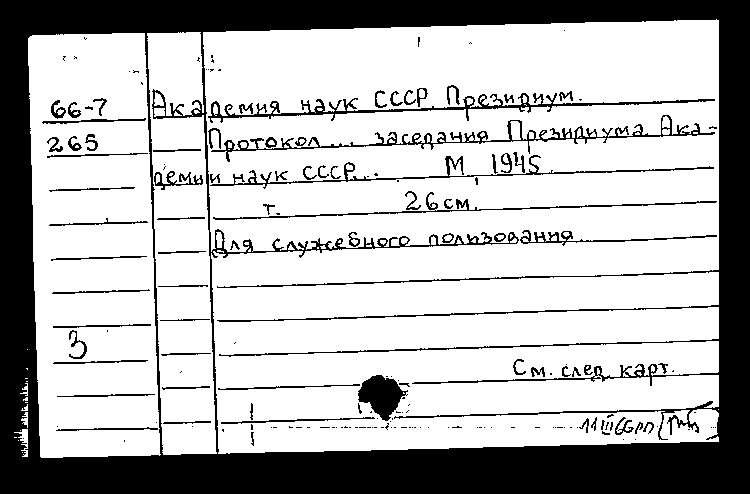 66-7 Академия наук СССР. Президиум.
265 Протокол... заседания Президиума Ака-
демии наук СССР... М, 1945.
т. 26 см.
Для служебного пользования
3
См. след. карт.
11 III 66